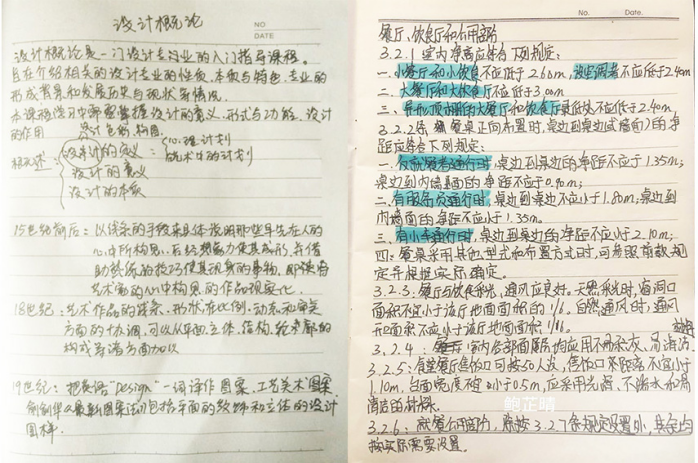 设计概论
NO
DATE
设计概论是一门设计专业的入门指导课程。
旨在介绍相关的设计专业的性质、本质与特色、专业的
形成背景和发展历史与现状等情况。
本课程学习中需要掌握设计的意义、形式与功能、设计
的作用
设计包括构图
概述
设计的定义
心理计划
艺术中的计划
设计的意义
设计的本质
15世纪前后：以线条的手段来具体说明那些早先在人的
心中所构思，后经想象力使其成形，并借
助熟练的技巧使其现身的事物，即
艺术家的心中构思的作品视觉化
18世纪：艺术作品的线条、形状、在比例、动态和审美
方面的协调，可以从平面、立体、结构、轮
构成等诸方面加以
19世纪：把英语"Design"一词译作图案、工艺美术图案
包括平面的纹饰和立体的设计
图样.
No.
Date.
餐厅、饮食厅和公用部分
3.2.1 室内净高应符合下列规定：
一.小餐厅和小饮食不应低于2.60m，设空调者不应低于2.40m
二.大餐厅和大饮食厅不应低于3.00m
三.异形顶棚的大餐厅和饮食厅最低处不应低于2.40m
3.2.2条 餐桌正向布置时，桌边到桌边(或墙面)的净
距应符合下列规定：
一.仅就餐者通行时，桌边到桌边的净距不应小于1.35m；
桌边到内墙面的净距不应小于0.90m；
二.有服务员通行时，桌边到桌边不应小于1.80m；桌边到
内墙面的净距不应小于1.35m.
三.有小车通行时，桌边到桌边的净距不应小于2.10m；
四.餐桌采用其他型式和布置方式时，可参照前款规
定并根据实际确定。
3.2.3：餐厅与饮食采光，通风应良好。天然采光时，窗洞口
面积不应小于该厅地面面积的1/6。自然通风时，通风
开口面积不应小于该厅地面面积1/16。
3.2.4：室内各部面层均应用不易积灰、易清洁
3.2.5：食堂餐厅售饭口可按50人设，售饭口间距不宜小于
1.10m，台面宽度不宜小于0.5m，应采用光滑、不渗水和易
清洁的材料.
3.2.6：就餐公用部分，除按3.2.7条规定设置外，其余均
按实际需要设置。
鲍芷晴